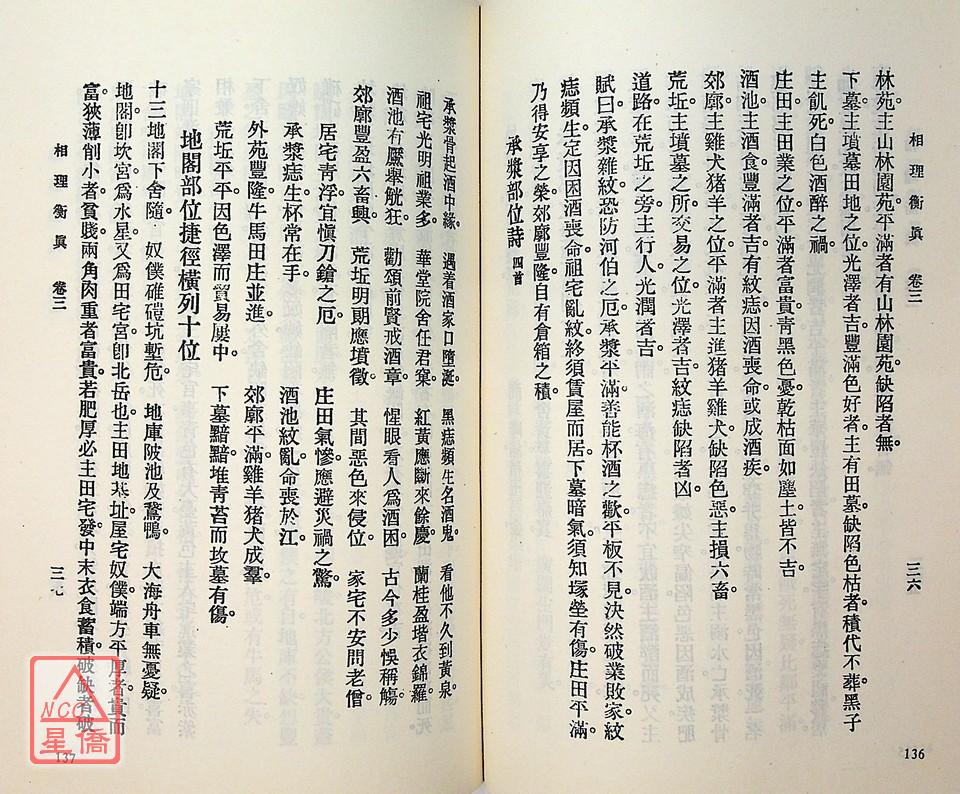 相理衡眞　卷三　三六
林苑。主山林園苑。平滿者有山林園苑。缺陷者無。
下墓。主墳墓田地之位。光澤者吉。豐滿色好者。主有田墓。缺陷色枯者。積代不葬。黑子
主飢死。白色酒醉之禍。
庄田。主田業之位。平滿者富貴。靑黑色憂。乾枯面如塵土。皆不吉。
酒池。主酒食。豐滿者吉。有紋痣因酒喪命。或成酒疾。
郊廓。主雞犬猪羊之位。平滿者主進猪羊雞犬。缺陷色惡。主損六畜。
荒坵。主墳墓之所。交易之位。光澤者吉。紋痣缺陷者凶。
道路。在荒坵之旁。主行人。光潤者吉。
賦曰。承漿雜紋。恐防河伯之厄。承漿平滿。善能杯酒之歡。平板不見。決然破業敗家。紋
痣頻生。定因困酒喪命。祖宅亂紋。終須賃屋而居。下墓暗氣。須知塚塋有傷。庄田平滿。
乃得安享之榮。郊廓豐隆。自有倉箱之積。
承漿部位詩　四首
136
承漿骨起酒中緣。　遇着酒家口墮涎。　黑痣頻生名酒鬼。　看他不久到黃泉。
祖宅光明祖業多。　華堂院舍任君窠。　紅黃應斷來餘慶。　蘭桂盈堦衣錦羅。
酒池有厭舉觥狂。　勸頌前賢戒酒章。　惺眼看人爲酒困。　古今多少悞稱觴。
郊廓豐盈六畜興。　荒坵明期應墳徵。　其間惡色來侵位。　家宅不安問老僧。
居宅靑浮。宜愼刀鎗之厄。　庄田氣慘。應避災禍之驚。
承漿痣生。杯常在手。　酒池紋亂。命喪於江。
外苑豐隆。牛馬田庄並進。　郊廓平滿。雞羊猪犬成羣。
荒坵平平。因色澤而貿易屢中。　下墓黯黯。堆靑苔而坟墓有傷。
地閣部位捷徑橫列十位
十三地閣下舍隨。　奴僕碓磑坑塹危。　地庫陂池及鵞鴨。　大海舟車無憂疑。
地閣卽坎宮。爲水星。又爲田宅宮。卽北岳也。主田地基址。屋宅奴僕。端方平厚者貴而
富。狹薄削小者貧賤。兩角肉重者富貴。若肥厚必主田宅發。中末衣食蓄積。破缺者破
相理衡眞　卷三　三七
137
NCC
星僑